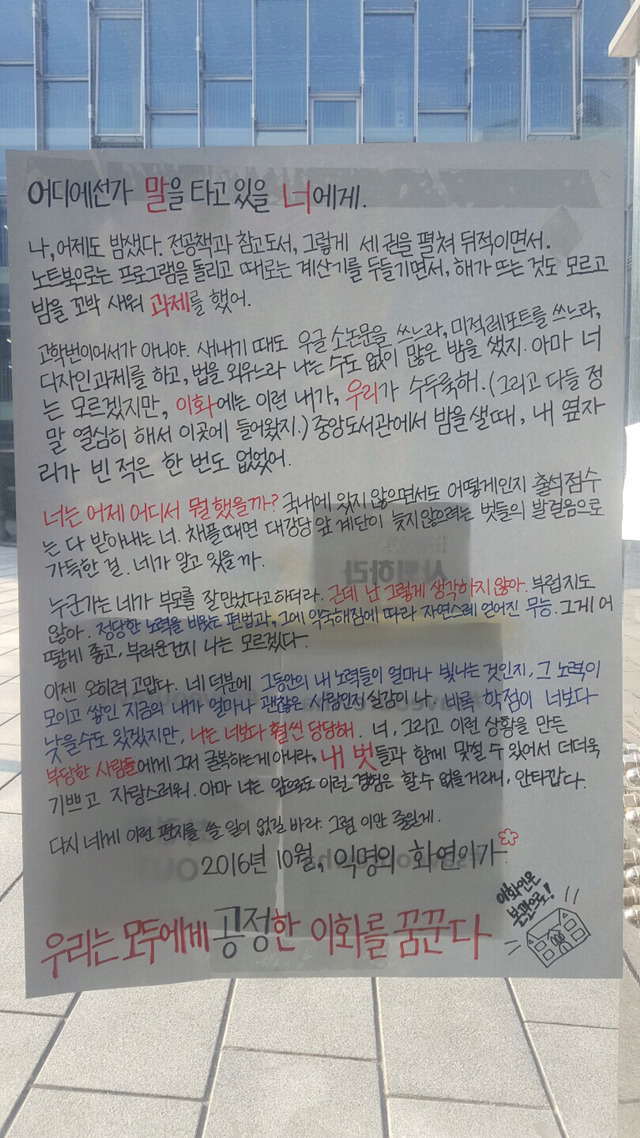 어디에선가 말을 타고 있을 너에게.
나, 어제도 밤샜다. 전공책과 참고도서, 그렇게 세 권을 펼쳐 뒤적이면서.
노트북으로는 프로그램을 돌리고 때로는 계산기를 두들기면서, 해가 뜨는 것도 모르고
밤을 꼬박 새워 과제를 했어.
고학번이어서가 아니야. 새내기 때도 우글 소논문을 쓰느라, 미적레포트를 쓰느라,
디자인과제를 하고, 법을 외우느라 나는 수도 없이 많은 밤을 샜지. 아마 너
는 모르겠지만, 이화에는 이런 내가, 우리가 수두룩해. (그리고 다들 정
말 열심히 해서 이곳에 들어왔지.) 중앙도서관에서 밤을 샐 때, 내 옆자
리가 빈 적은 한 번도 없었어.
너는 어제 어디서 뭘 했을까? 국내에 있지 않으면서도 어떻게인지 출석점수
는 다 받아내는 너. 채플 때면 대강당 앞 계단이 늦지 않으려는 벗들의 발걸음으로
가득한 걸. 네가 알고 있을까.
누군가는 네가 부모를 잘 만났다고 하더라. 근데 난 그렇게 생각하지 않아. 부럽지도
않아. 정당한 노력을 비웃는 편법과, 그에 익숙해짐에 따라 자연스레 얻어진 무능. 그게 어
떻게 좋고, 부러운건지 나는 모르겠다.
이젠 오히려 고맙다. 네 덕분에 그동안의 내 노력들이 얼마나 빛나는 것인지, 그 노력이
모이고 쌓인 지금의 내가 얼마나 괜찮은 사람인지 실감이 나. 비록 학점이 너보다
낮을수도 있겠지만, 나는 너보다 훨씬 당당해. 너, 그리고 이런 상황을 만든
부당한 사람들에게 그저 굴복하는게 아니라, 내 벗들과 함께 맞설 수 있어서 더더욱
기쁘고 자랑스러워. 아마 너는 앞으로도 이런 경험은 할 수 없을거라니, 안타깝다.
다시 네게 이런 편지를 쓸 일이 없길 바라. 그럼 이만 줄일게.
2016년 10월, 익명의 화연이가
이화인은
본관으로!
우리는 모두에게 공정한 이화를 꿈꾼다